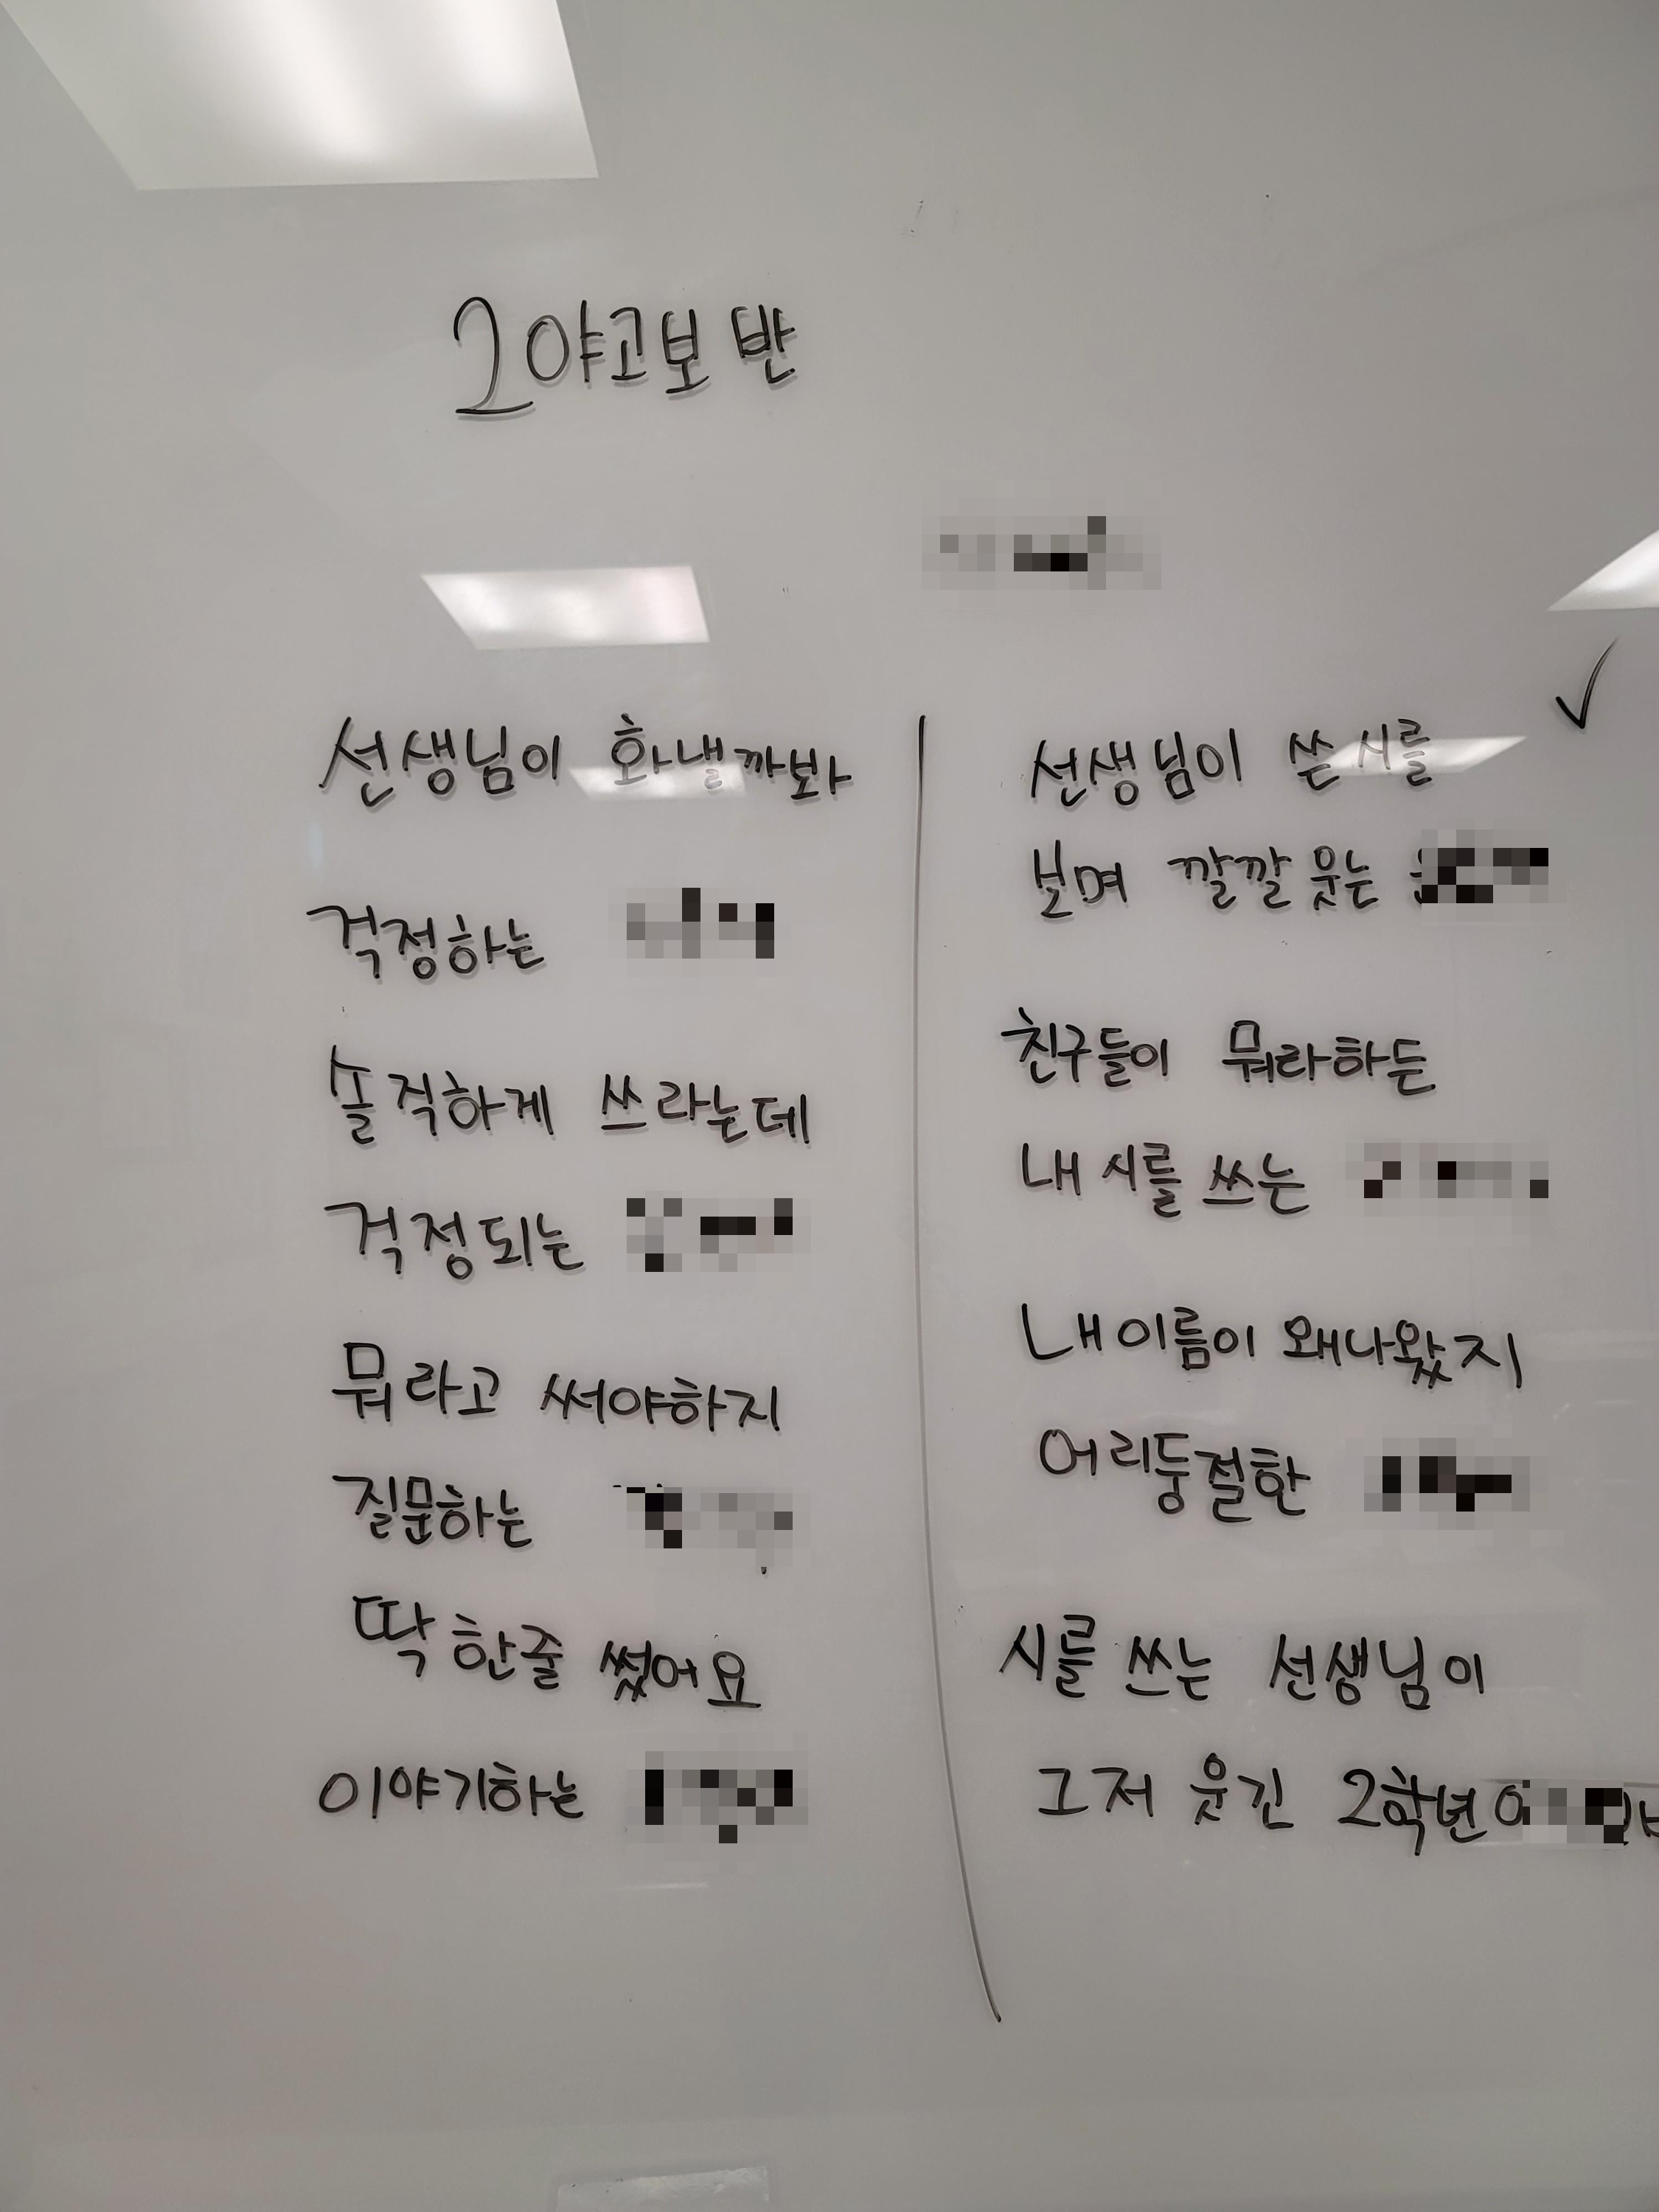 2야고보 반
선생님이 화낼까봐
걱정하는
솔직하게 쓰라는데
걱정되는
뭐라고 써야하지
질문하는
딱 한줄 썼어요
이야기하는
선생님이 쓴 시를
보며 깔깔 웃는
친구들이 뭐라하든
내 시를 쓰는
내 이름이 왜나왔지
어리둥절한
시를 쓰는 선생님이
그저 웃긴 2학년